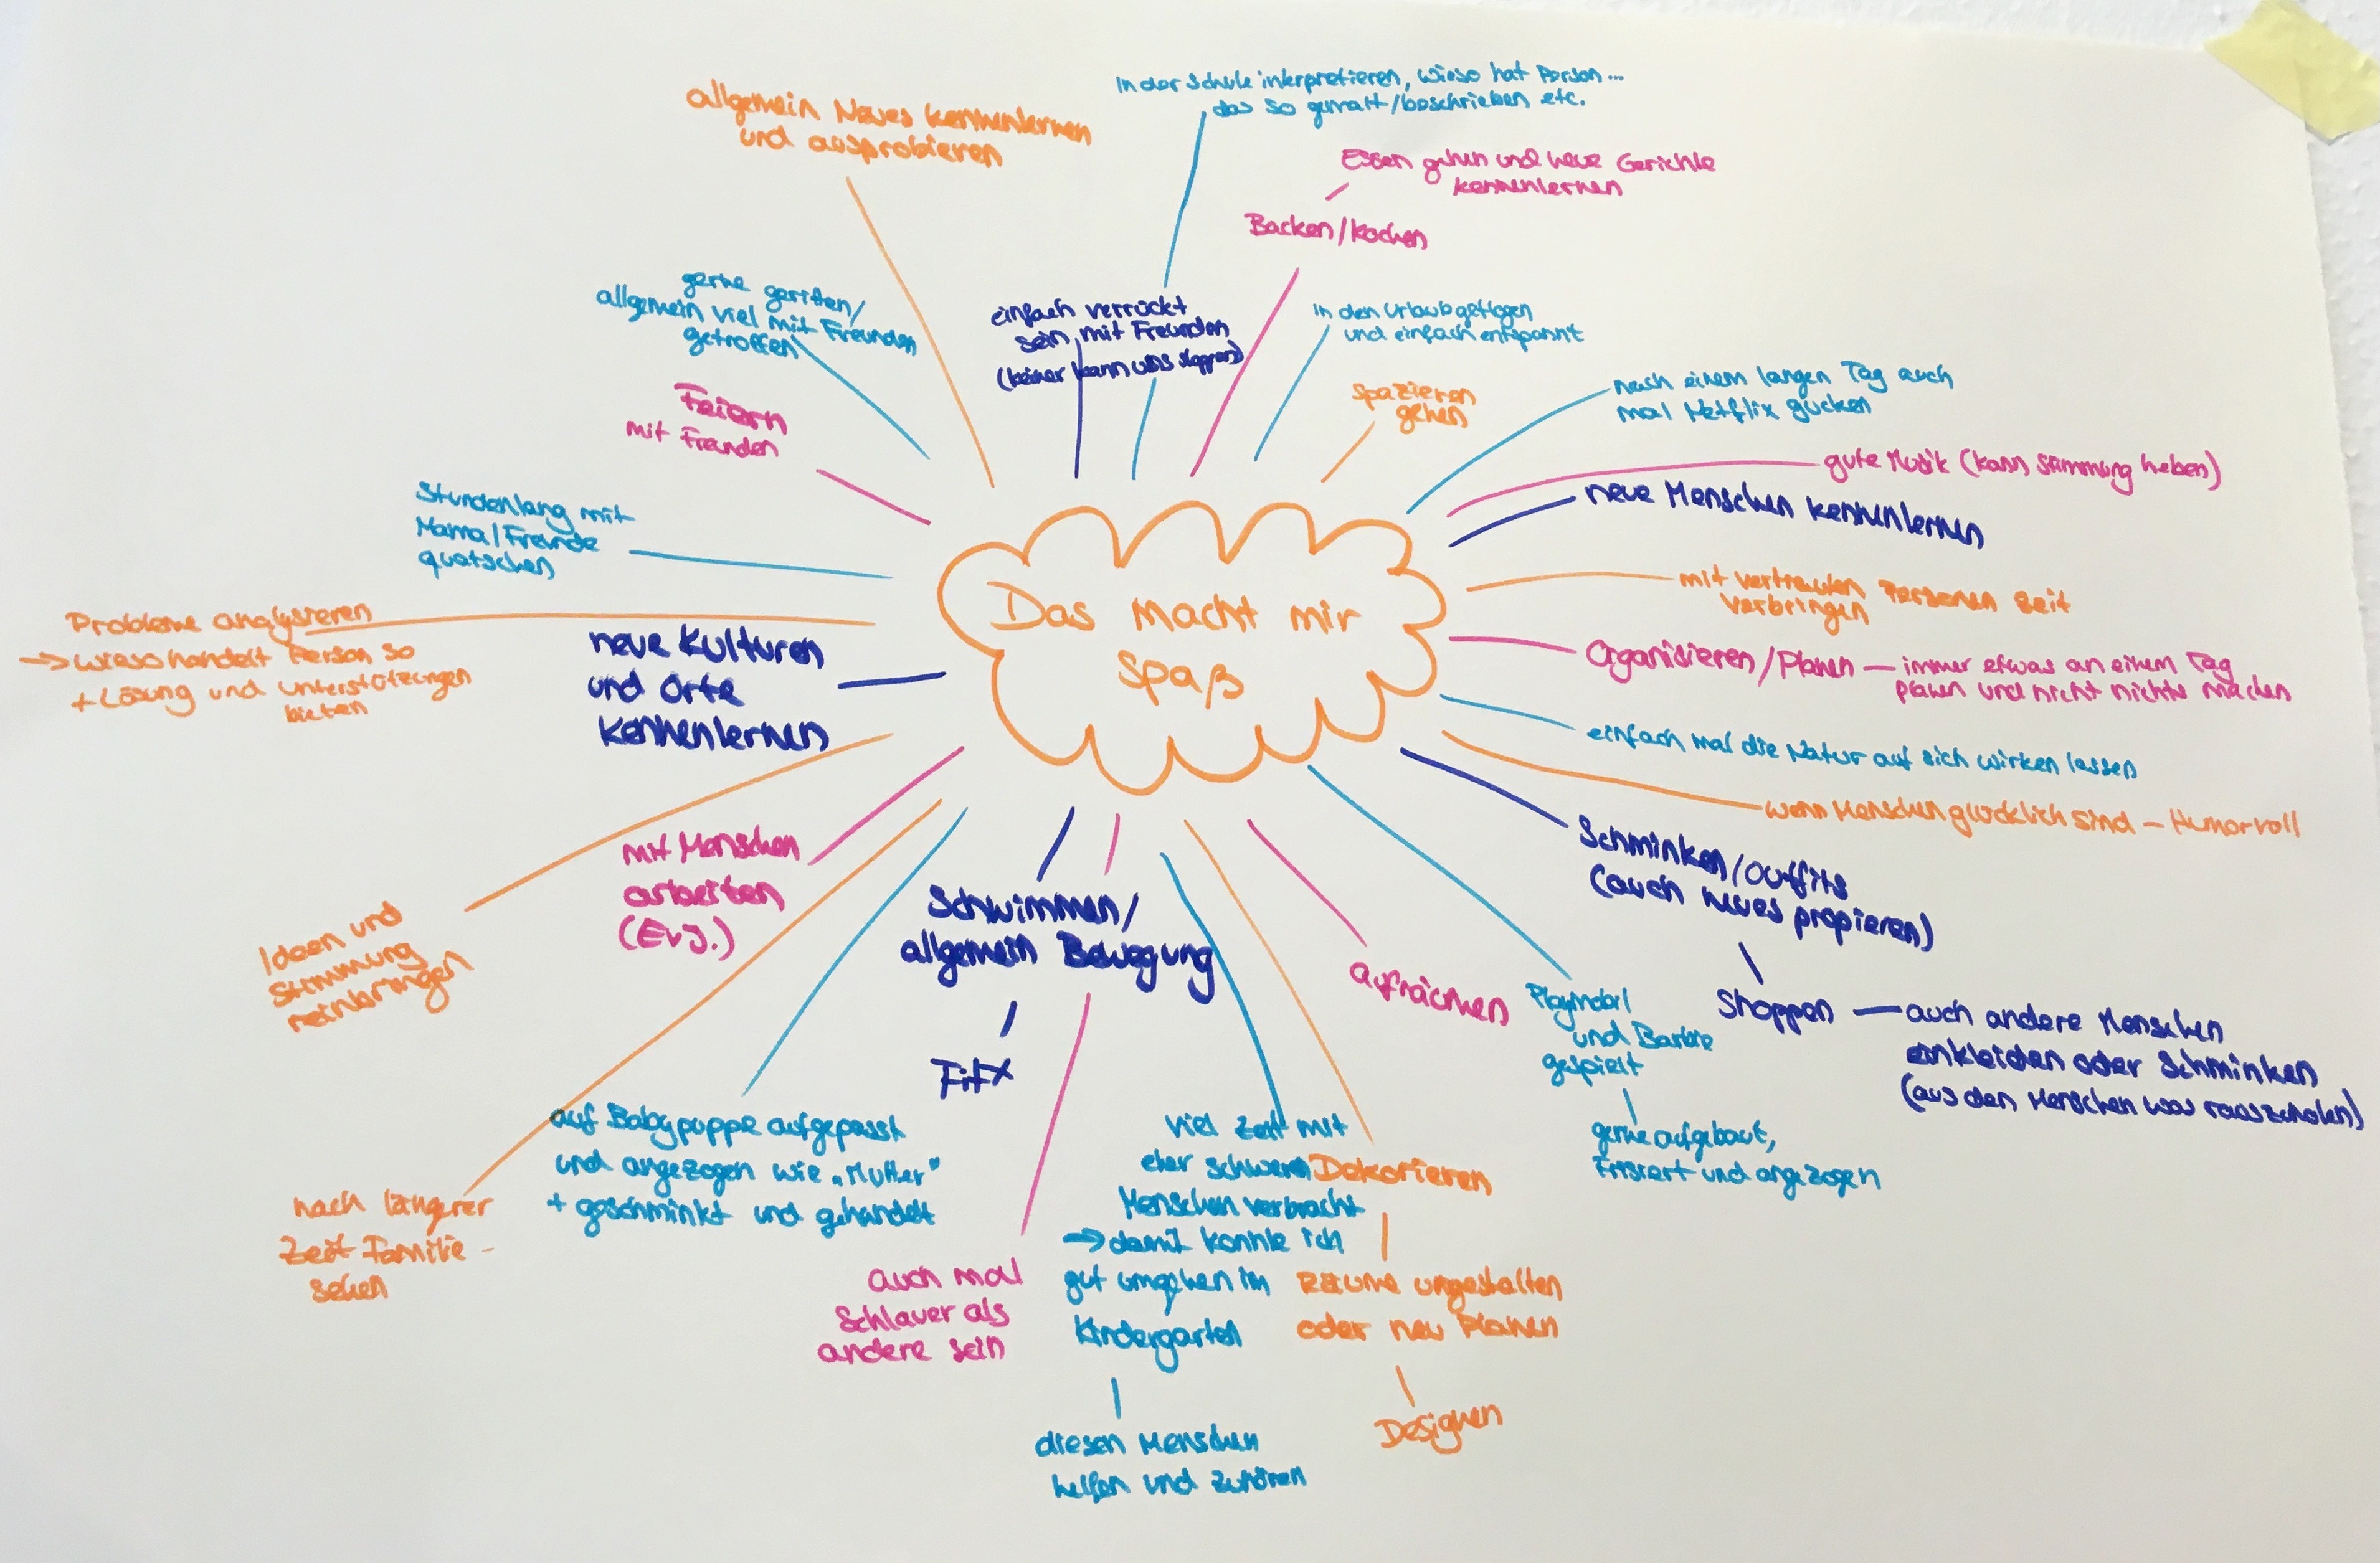 allgemein Neues kennenlernen
und ausprobieren
In der Schule interpretieren, wieso hat Person ...
das so gemalt/beschrieben etc.
Essen gehen und neue Gerichte
kennenlernen
Backen/Kochen
gerne geritten/
allgemein viel mit Freunden
getroffen
einfach verrückt
sein mit Freunden
(keiner kann uns stoppen)
in den Urlaub geflogen
und einfach entspannt
Spazieren
gehen
nach einem langen Tag auch
mal Netflix gucken
Feiern
mit Freunden
gute Musik (kann Stimmung heben)
neue Menschen kennenlernen
Stundenlang mit
Mama/Freunde
quatschen
mit vertrauten Personen Zeit
verbringen
Das macht mir
Spaß
Probleme analysieren
→ wieso handelt Person so
+ Lösung und unterstützungen
bieten
neue Kulturen
und Orte
kennenlernen
Organisieren/Planen — immer etwas an einem Tag
planen und nicht nichts machen
einfach mal die Natur auf sich wirken lassen
wenn Menschen glücklich sind – Humorvoll
Schminken/Outfits
(auch neues propieren)
Shoppen — auch andere Menschen
einkleiden oder Schminken
(aus den Menschen was rauszuholen)
mit Menschen
arbeiten
(EvJ.)
Ideen und
Stimmung
reinbringen
Schwimmen/
allgemein Bewegung
FitX
aufräumen
Playmobil
und Barbie
gespielt
gerne aufgebaut,
Frisiert und angezogen
auf Babypuppe aufgepasst
und angezogen wie „Mutter"
+ geschminkt und gehandelt
nach längerer
Zeit Familie
sehen
auch mal
Schlauer als
andere sein
viel Zeit mit
eher schweren
Menschen verbracht
→ damit konnte ich
gut umgehen im
Kindergarten
diesen Menschen
helfen und zuhören
Dekorieren
Räume umgestalten
oder neu Planen
Designen